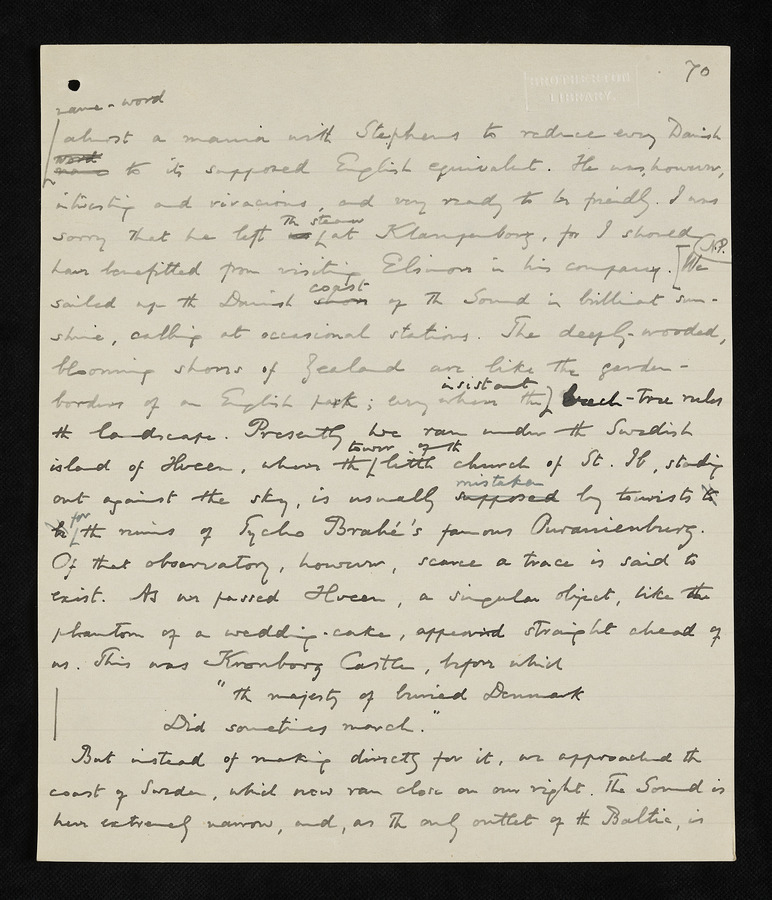 70
BROTHERTON
LIBRARY
name-word
almost a mania with Stephens to reduce every Danish
word
name to its supposed English equivalent. He was, however,
interesting and vivacious, and very ready to be friendly. I was
the steam
sorry that he left at Klampenborg, for I should
have benefitted from visiting Elsinore in his company. We
N.P.
coast
sailed up th Danish shore of th Sound in brilliant sun-
shine, calling at occasional stations. The deeply-wooded,
blooming shores of Zealand are like the garden-
insistent
borders of an English park; everywhere the beech-tree rules
th landscape. Presently we ran under th Swedish
tower of th
island of Hveen, where th little church of St. Ib, standing
mistaken
out against the sky, is usually supposed by tourists to
for
be th ruins of Tycho Brahé's famous Ouranienburg.
Of that observatory, however, scarce a trace is said to
exist. As we passed Hveen, a singular object, like the
phantom of a wedding-cake, appeared straight ahead of
us. This was Kronborg Castle, before which
"th majesty of buried Denmark
Did sometimes march."
But instead of making directly for it, we approached th
coast of Sweden, which now ran close on our right. The Sound is
here extremely narrow, and, as th only outlet of th Baltic, is